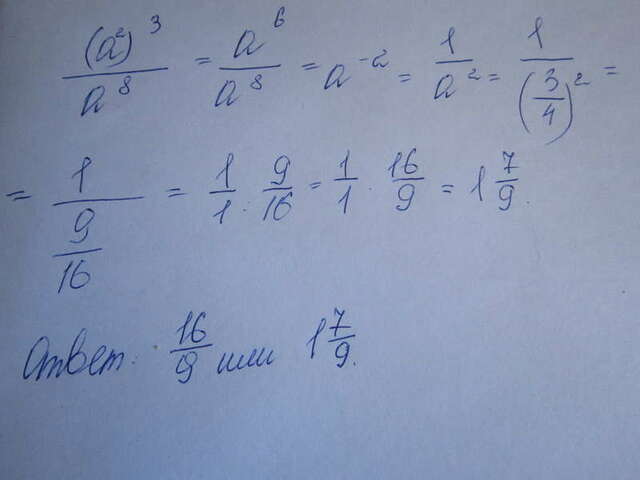 (a²)³/a⁸ = a⁶/a⁸ = a⁻² = 1/a² = 1/(3/4)² =
= 1/(9/16) = 1/1 : 9/16 = 1/1 · 16/9 = 1 7/9.
Ответ: 16/9 или 1 7/9.